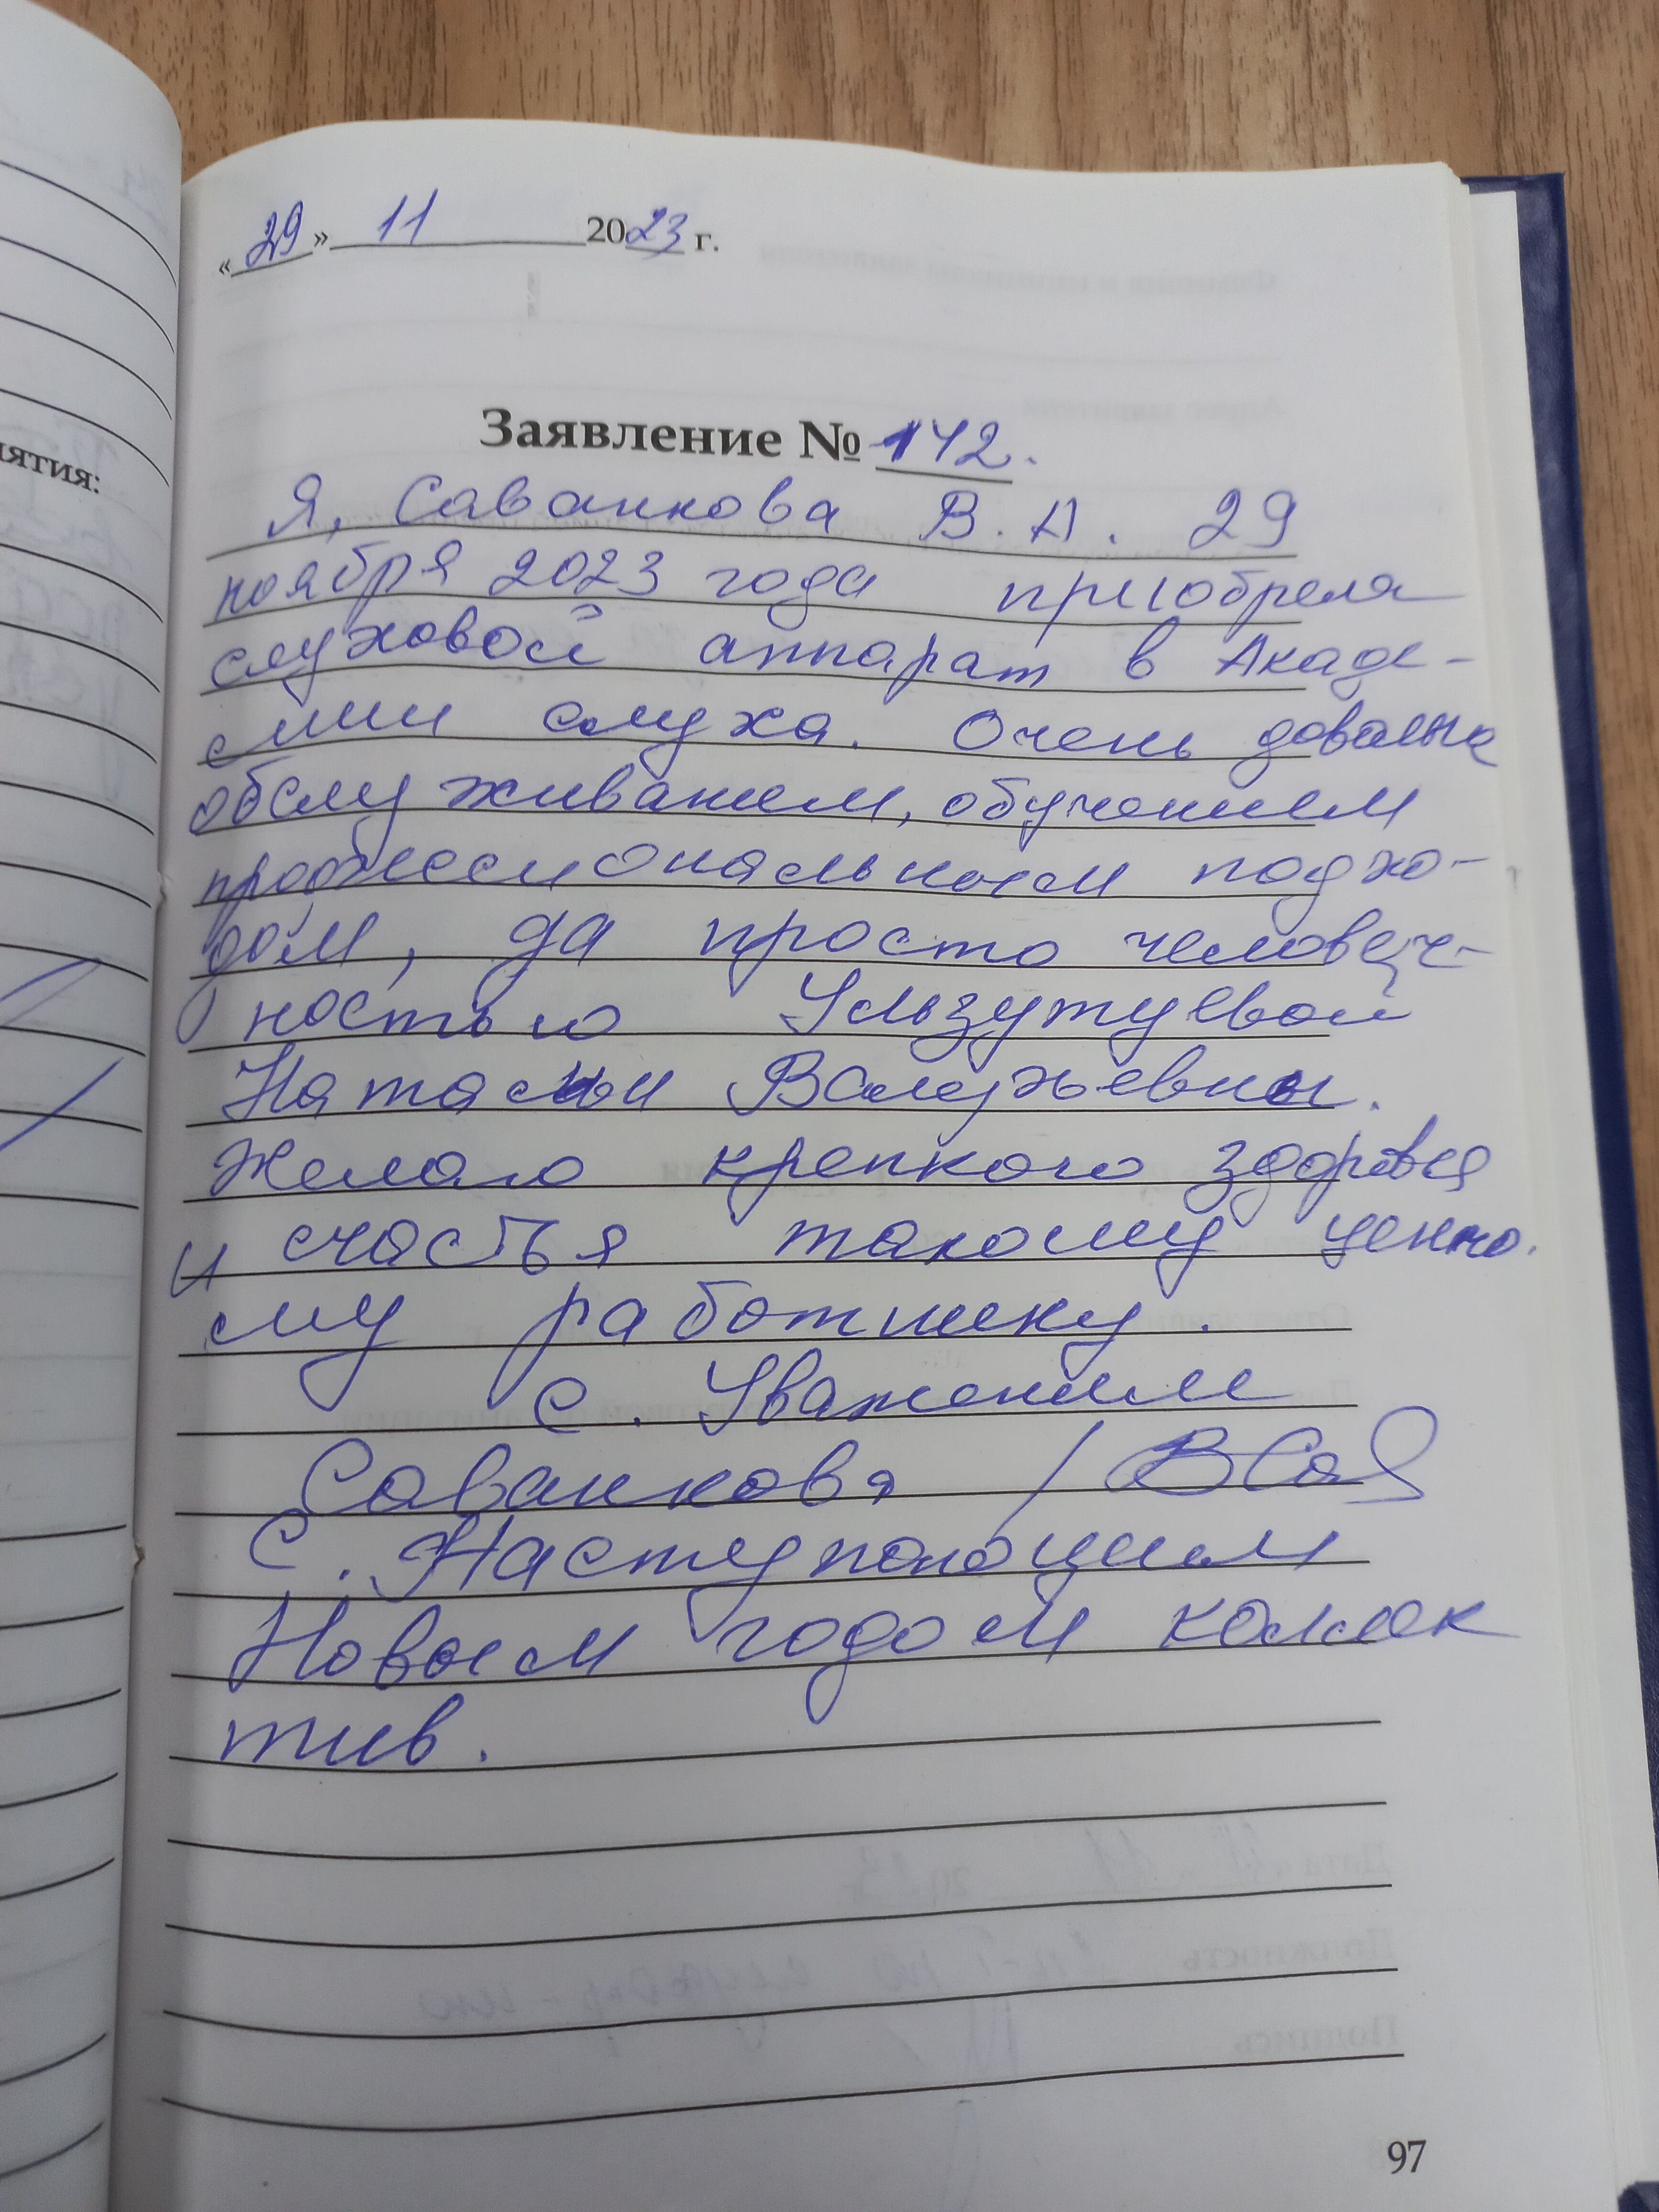 «29» 11 2023 г.
ятия:
Заявление № 142.
Я, Саванкова В. А. 29
ноября 2023 года приобрела
слуховой аппарат в Акаде-
мии слуха. Очень довольна
обслуживанием, обучением
профессиональным подхо-
дом, да просто человеч-
ностью Ульзутуевой
Натальи Валерьевны.
Желаю крепкого здоровья
и счастья такому ценно.
му работнику.
С. Уважением
Саванкова /
С. Наступающим
Новым годом коллек
тив.
97